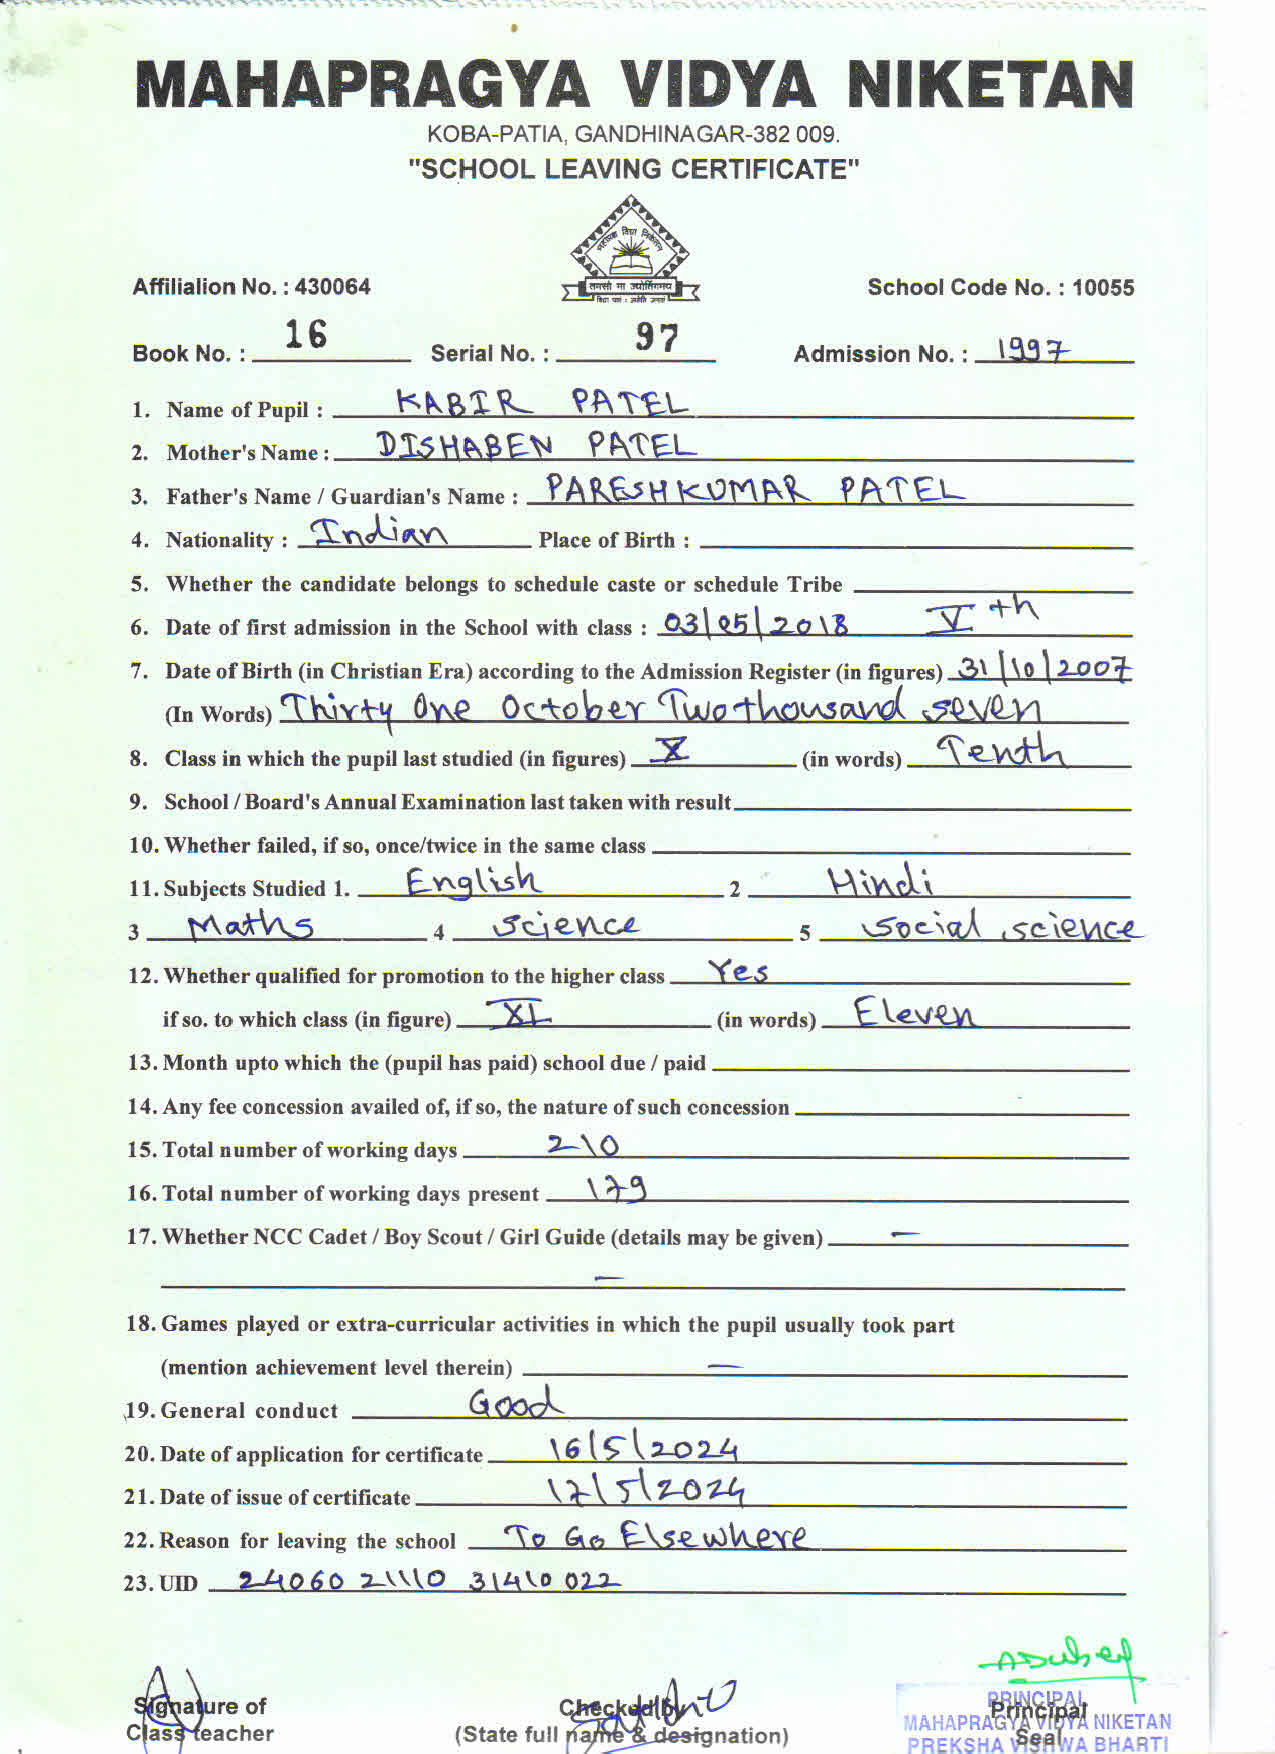 MAHAPRAGYA VIDYA NIKETAN
KOBA-PATIA, GANDHINAGAR-382 009.
"SCHOOL LEAVING CERTIFICATE"
महाप्रज्ञ विद्या निकेतन
तमसो मा ज्योतिर्गमय
Affilialion No. : 430064 School Code No. : 10055
Book No. : 16 Serial No. : 97 Admission No. : 1997
1. Name of Pupil : KABIR PATEL
2. Mother's Name : DISHABEN PATEL
3. Father's Name / Guardian's Name : PARESHKUMAR PATEL
4. Nationality : Indian Place of Birth :
5. Whether the candidate belongs to schedule caste or schedule Tribe
6. Date of first admission in the School with class : 03/05/2018 Vth
7. Date of Birth (in Christian Era) according to the Admission Register (in figures) 31/10/2007
(In Words) Thirty One October Two thousand seven
8. Class in which the pupil last studied (in figures) X (in words) Tenth
9. School / Board's Annual Examination last taken with result
10. Whether failed, if so, once/twice in the same class
11. Subjects Studied 1. English 2 Hindi
3 Maths 4 Science 5 Social science
12. Whether qualified for promotion to the higher class Yes
if so. to which class (in figure) XI (in words) Eleven
13. Month upto which the (pupil has paid) school due / paid
14. Any fee concession availed of, if so, the nature of such concession
15. Total number of working days 210
16. Total number of working days present 179
17. Whether NCC Cadet / Boy Scout / Girl Guide (details may be given) —
—
18. Games played or extra-curricular activities in which the pupil usually took part
(mention achievement level therein) —
19. General conduct Good
20. Date of application for certificate 16/5/2024
21. Date of issue of certificate 17/5/2024
22. Reason for leaving the school To Go Elsewhere
23. UID 24060 21110 31410 022
Signature of Checked by PRINCIPAL Principal
Class teacher (State full name & designation) MAHAPRAGYA VIDYA NIKETAN Seal
PREKSHA VISHWA BHARTI